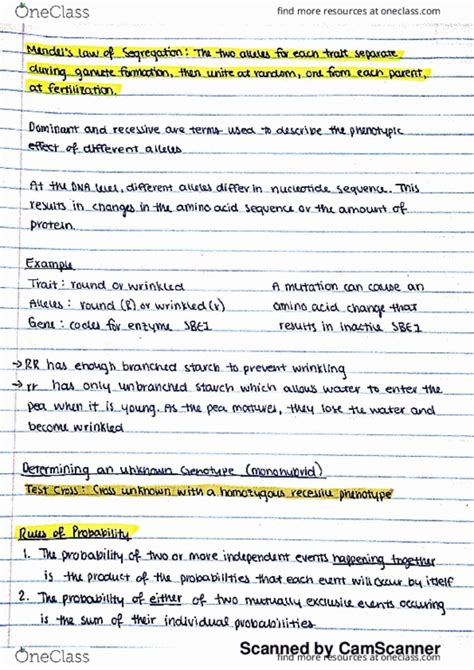 OneClass
find more resources at oneclass.com
Mendel's Law of Segregation: The two alleles for each trait separate
during gamete formation, then unite at random, one from each parent,
at fertilization.
Dominant and recessive are terms used to describe the phenotypic
effect of different alleles
At the DNA level, different alleles differ in nucleotide sequence. This
results in changes in the amino acid sequence or the amount of
protein.
Example
Trait: round or wrinkled
Alleles: round (R) or wrinkled (r)
Gene: codes for enzyme SBE1
A mutation can cause an
amino acid change that
results in inactive SBE1
→RR has enough branched starch to prevent wrinkling
→rr has only unbranched starch which allows water to enter the
pea when it is young. As the pea matures, they lose the water and
become wrinkled
Determining an Unknown Genotype (monohybrid)
Test Cross: Cross unknown with a homozygous recessive phenotype
Rules of Probability
1. The probability of two or more independent events happening together
is the product of the probabilities that each event will occur by itself
2. The probability of either of two mutually exclusive events occuring
is the sum of their individual probabilities.
Scanned by CamScanner
OneClass
find more resources at oneclass.com